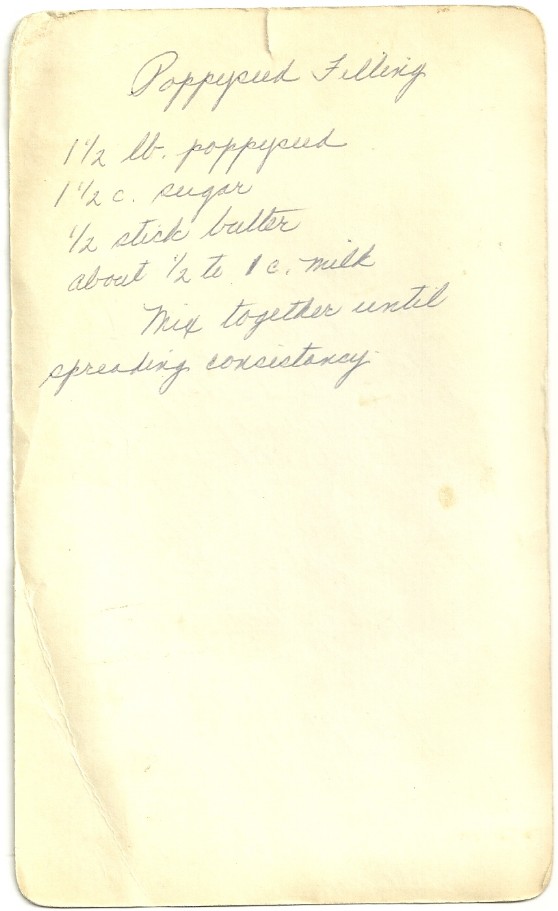 Poppyseed Filling
1 1/2 lb. poppyseed
1 1/2 c. sugar
1/2 stick butter
about 1/2 to 1 c. milk
Mix together until
spreading consistancy.